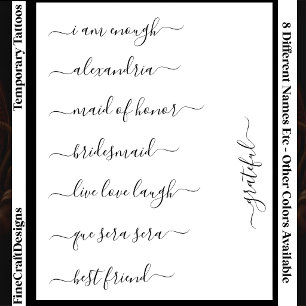 i am enough
alexandria
maid of honor
bridesmaid
live love laugh
que sera sera
best friend
grateful
Temporary Tattoos
FineCraftDesigns
8 Different Names Etc - Other Colors Available